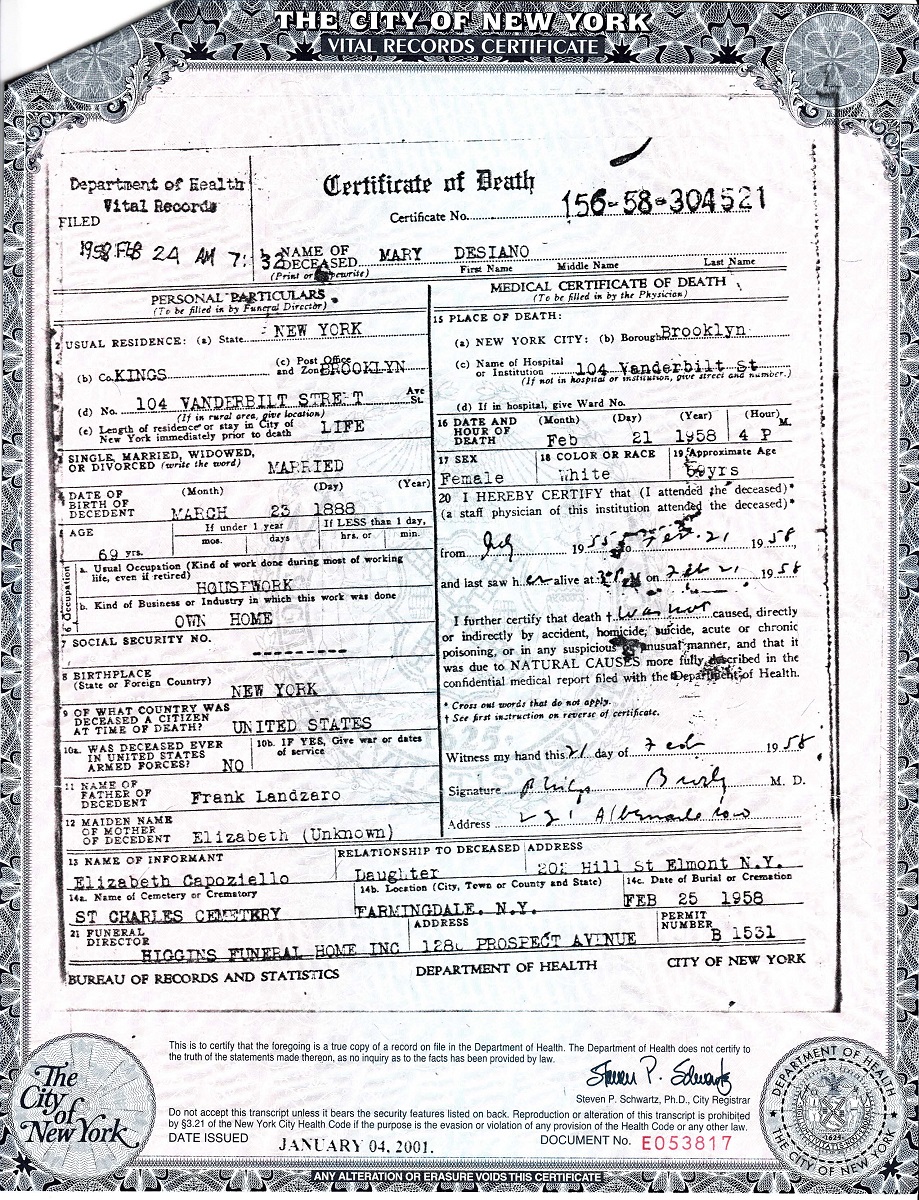 THE CITY OF NEW YORK
VITAL RECORDS CERTIFICATE
Department of Health
Vital Records
FILED
1958 FEB 24 AM 7:32
Certificate of Death
Certificate No. 156-58-304521
1. NAME OF DECEASED MARY DESIANO
(Print or Typewrite) First Name Middle Name Last Name
PERSONAL PARTICULARS
(To be filled in by Funeral Director)
2 USUAL RESIDENCE: (a) State NEW YORK
(b) Co. KINGS (c) Post Office and Zone BROOKLYN
(d) No. 104 VANDERBILT STREET Ave St.
(If in rural area, give location)
(e) Length of residence or stay in City of New York immediately prior to death LIFE
3 SINGLE, MARRIED, WIDOWED, OR DIVORCED (write the word) MARRIED
4 DATE OF BIRTH OF DECEDENT (Month) (Day) (Year)
MARCH 23 1888
5 AGE If under 1 year If LESS than 1 day,
69 yrs. mos. days hrs. or min.
6 Occupation
a. Usual Occupation (Kind of work done during most of working life, even if retired)
HOUSEWORK
b. Kind of Business or Industry in which this work was done
OWN HOME
7 SOCIAL SECURITY NO. ----------
8 BIRTHPLACE
(State or Foreign Country) NEW YORK
9 OF WHAT COUNTRY WAS DECEASED A CITIZEN AT TIME OF DEATH? UNITED STATES
10a. WAS DECEASED EVER IN UNITED STATES ARMED FORCES? NO
10b. IF YES, Give war or dates of service
11 NAME OF FATHER OF DECEDENT Frank Landzaro
12 MAIDEN NAME OF MOTHER OF DECEDENT Elizabeth (Unknown)
MEDICAL CERTIFICATE OF DEATH
(To be filled in by the Physician)
15 PLACE OF DEATH:
(a) NEW YORK CITY: (b) Borough Brooklyn
(c) Name of Hospital or Institution 104 Vanderbilt St
(If not in hospital or institution, give street and number.)
(d) If in hospital, give Ward No.
16 DATE AND HOUR OF DEATH (Month) (Day) (Year) (Hour)
Feb 21 1958 4 P M.
17 SEX Female
18 COLOR OR RACE White
19 Approximate Age 69yrs
20 I HEREBY CERTIFY that (I attended the deceased)*
(a staff physician of this institution attended the deceased)*
from 1955 to Feb. 21 1958
and last saw her alive at on Feb 21 1958
I further certify that death † was not caused, directly
or indirectly by accident, homicide, suicide, acute or chronic
poisoning, or in any suspicious or unusual manner, and that it
was due to NATURAL CAUSES more fully described in the
confidential medical report filed with the Department of Health.
* Cross out words that do not apply.
† See first instruction on reverse of certificate.
Witness my hand this 21 day of Feb 1958
Signature Philip M. D.
Address
13 NAME OF INFORMANT RELATIONSHIP TO DECEASED ADDRESS
Elizabeth Capoziello Daughter 202 Hill St Elmont N.Y.
14a. Name of Cemetery or Crematory 14b. Location (City, Town or County and State) 14c. Date of Burial or Cremation
ST CHARLES CEMETERY FARMINGDALE, N.Y. FEB 25 1958
21 FUNERAL DIRECTOR ADDRESS PERMIT NUMBER
HIGGINS FUNERAL HOME INC PROSPECT AVENUE B 1531
BUREAU OF RECORDS AND STATISTICS DEPARTMENT OF HEALTH CITY OF NEW YORK
This is to certify that the foregoing is a true copy of a record on file in the Department of Health. The Department of Health does not certify to
the truth of the statements made thereon, as no inquiry as to the facts has been provided by law.
Steven P. Schwartz
Steven P. Schwartz, Ph.D., City Registrar
Do not accept this transcript unless it bears the security features listed on back. Reproduction or alteration of this transcript is prohibited
by §3.21 of the New York City Health Code if the purpose is the evasion or violation of any provision of the Health Code or any other law.
DATE ISSUED JANUARY 04, 2001. DOCUMENT No. E053817
The City of New York
DEPARTMENT OF HEALTH
THE CITY OF NEW YORK
1625
ANY ALTERATION OR ERASURE VOIDS THIS CERTIFICATE